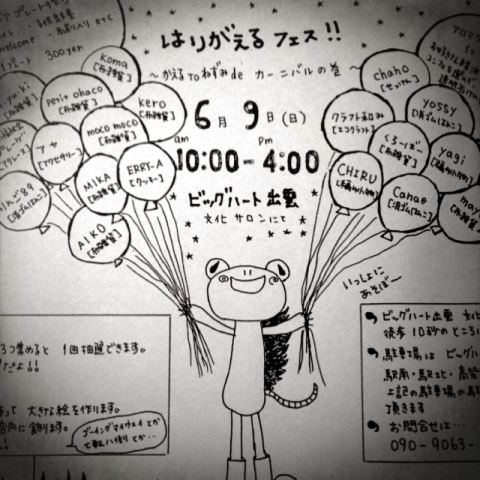 はりがえるフェス!!
〜かえるToねずみde カーニバルの巻〜
6月9日(日)
am pm
10:00-4:00
ビッグハート出雲
文化サロンにて
プレート 300yen
welcome
koma
[布雑貨]
petit ohaco
[布雑貨]
kero
[布雑貨]
moco moco
[布雑貨]
アヤ
[アクセサリー]
MIKA
[布雑貨]
ERRY-A
[クッキー]
AIKO
[布雑貨]
chaho
[せっけん]
yossy
[消ゴムはんこ]
クラフト和み
[エコクラフト]
くろーばー
[布雑貨]
yagi
CHIRU
Canae
[消ゴムはんこ]
may
いっしょに
あそぼ〜
3つ集めると 1回抽選できます。
だよ!!
って 大きな絵を作ります。
に飾ります。
ゴーイングマイウェイとか
七転八倒とか…
ビッグハート出雲 文化
徒歩10秒のところ
駐車場は ビッグハ
駅南・駅北・高架
上記の駐車場の駐
頂きます
お問合せは…
090-9063-